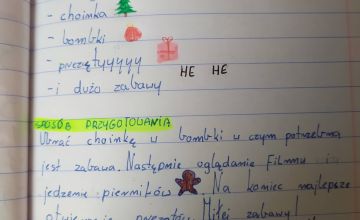 - choinka
- bombki
- prezętyyyyy
HE HE
- i dużo zabawy
SPOSÓB PRZYGOTOWANIA
Ubrać choinkę w bombki w czym potrzebna
jest zabawa. Następnie oglądanie Filmu i
jedzenie pierników Na koniec najlepsze
otwieranie prezętów. Miłej zabawy!